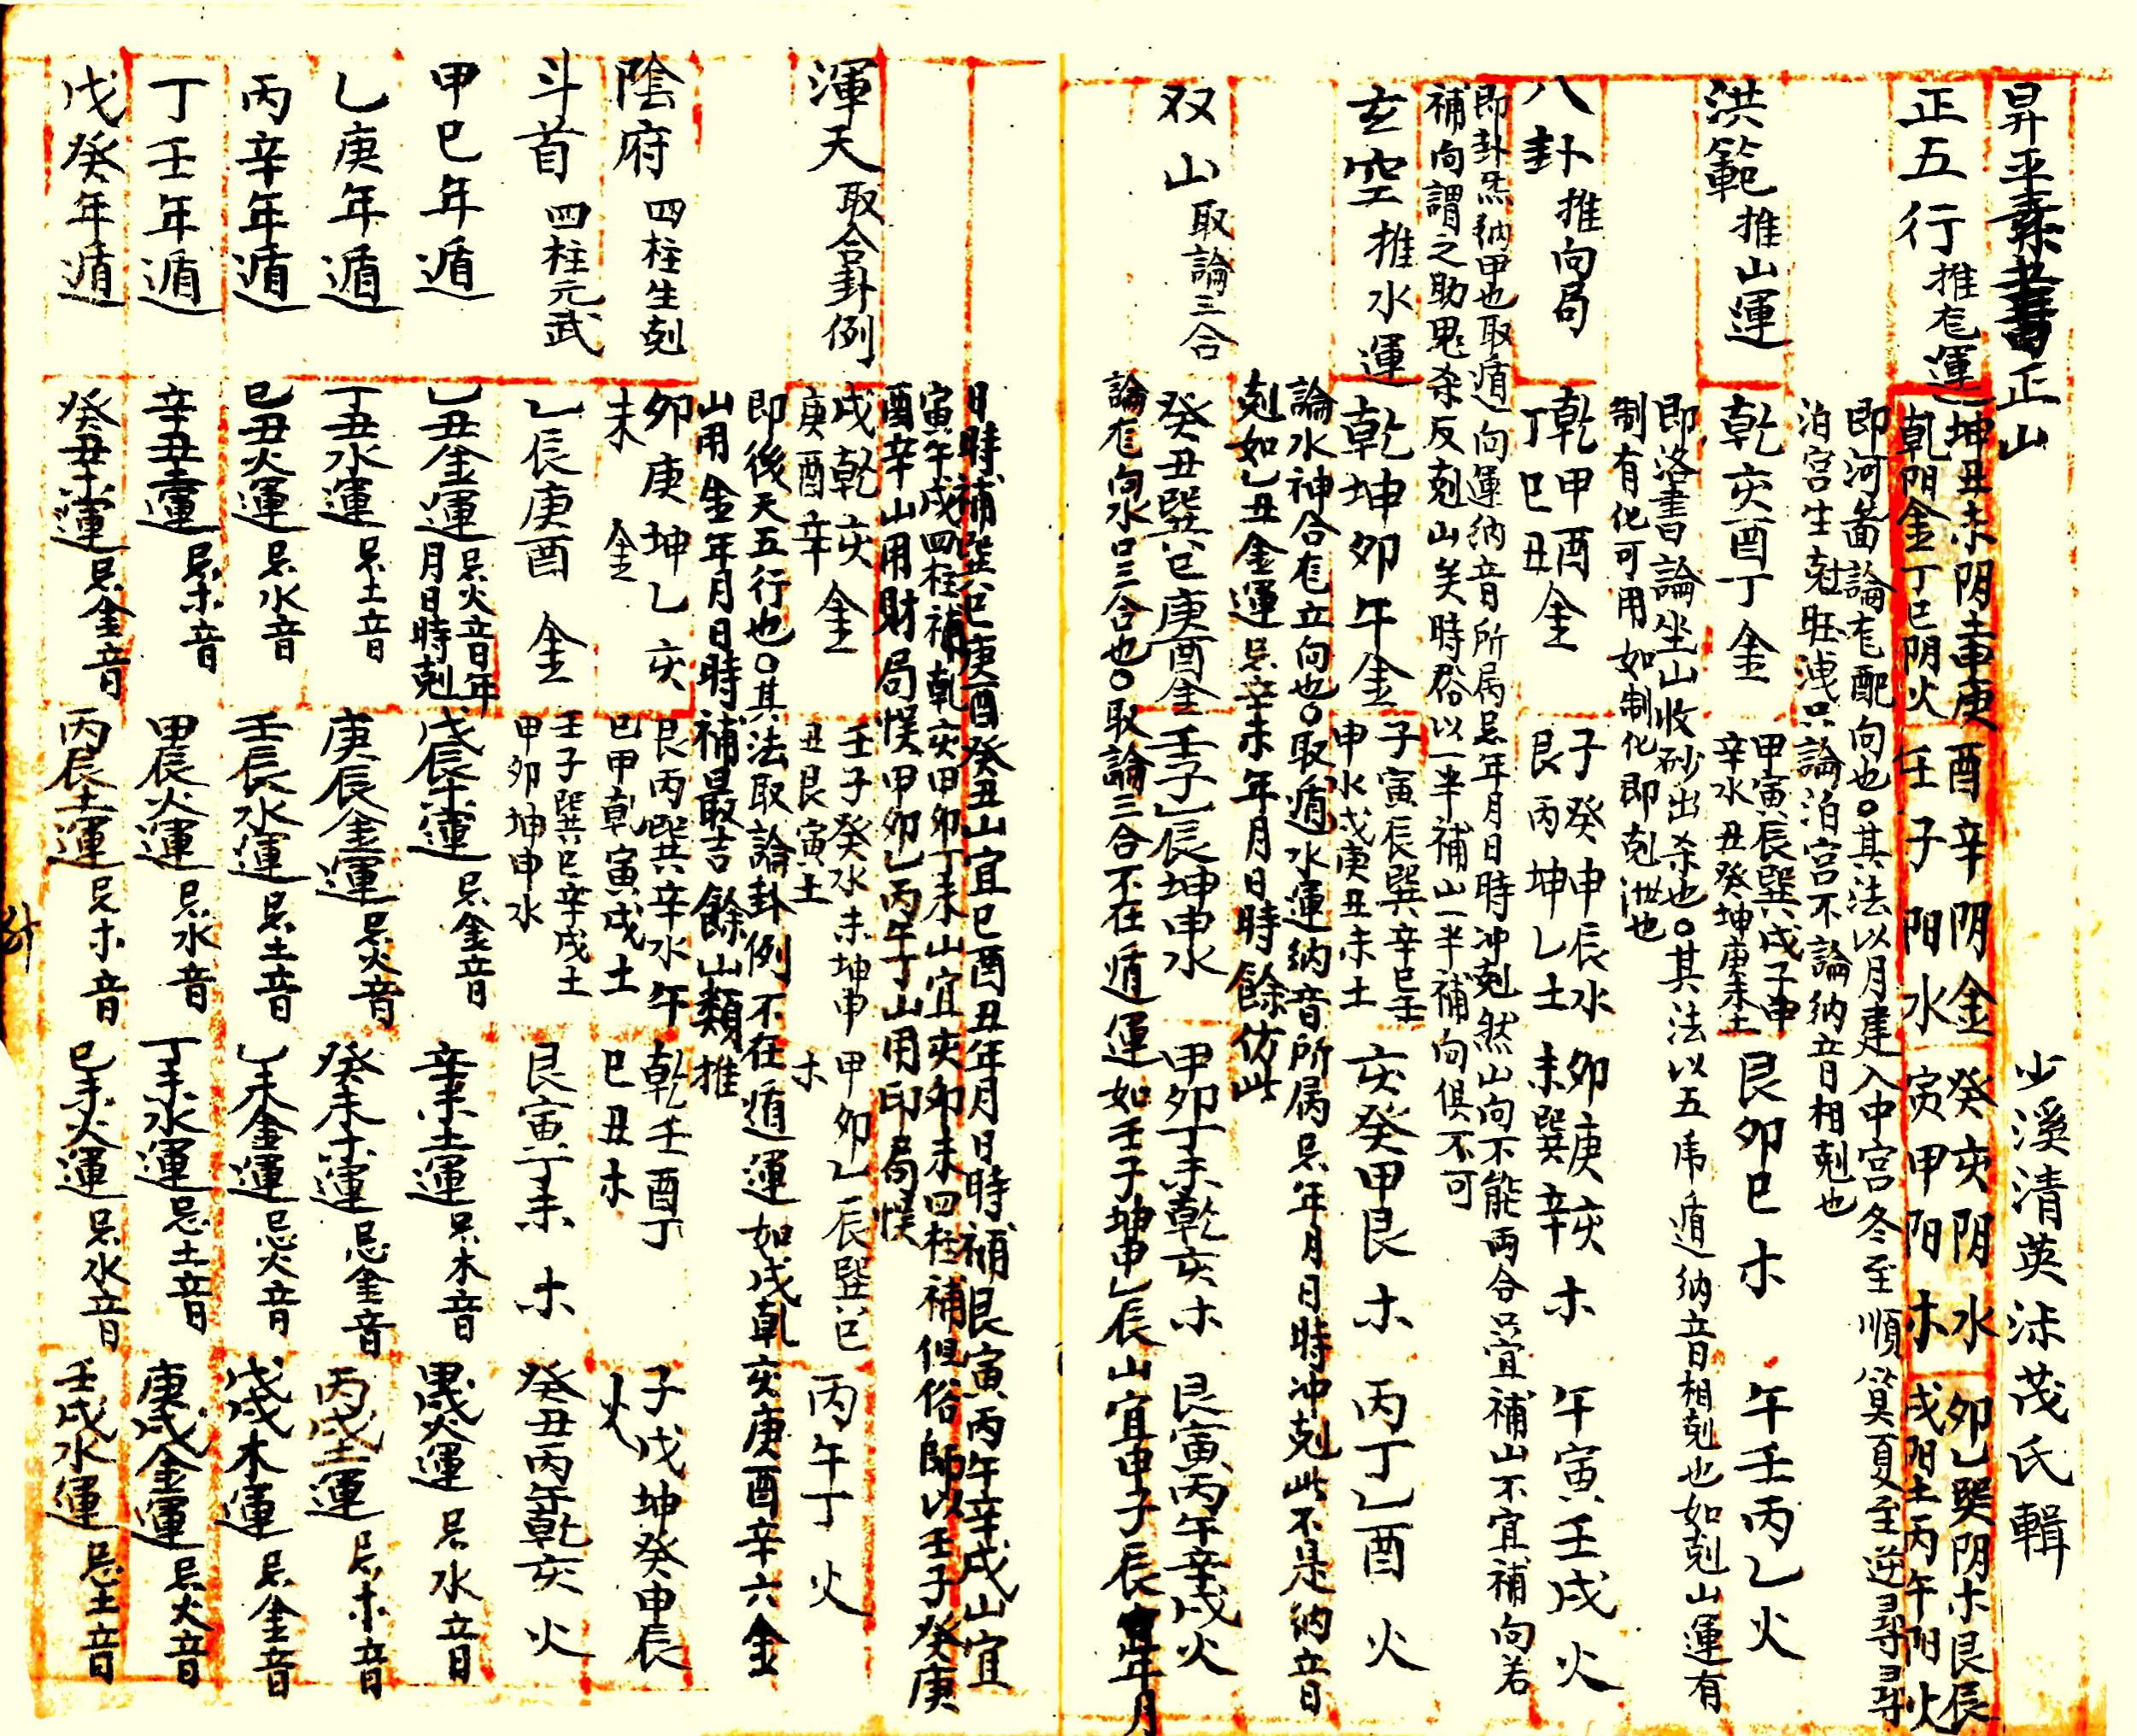 少溪清英沭茂氏輯
正五行 推龙運
坤丑未阴土申庚酉辛阴金癸亥阴水卯乙巽阴木艮辰
乾阳金丁巳阴火壬子阳水寅甲阳木戌阳土丙午阳火
即河畵論龙配向也○其法以月建入中宫冬至順筭夏至逆尋尋
泊宫生尅旺洩只論泊宫不論納音相剋也
洪範 推山運
乾亥酉丁金
甲寅辰巽戌子申
辛水丑癸坤庚未土
艮卯巳木
午壬丙乙火
即洛書論坐山收砂出杀也○其法以五虎遁納音相剋也如剋山運有
制有化可用如制化即剋泄也
八卦 推向局
乾甲酉金
丁巳丑
子癸申辰水
艮丙坤乙土
卯庚亥木
未巽辛
午寅壬戌火
即卦炁納甲也取遁向運納音所属忌年月日時冲剋然山向不能両合只宜補山不宜補向若
補向謂之助鬼杀反剋山矣時俗以一半補山一半補向俱不可
玄空 推水運
乾坤卯午金
子寅辰巽辛巳壬
申水戌庚丑未土
亥癸甲艮木
丙丁乙酉火
論水神合龙立向也○取遁水運納音所属忌年月日時冲剋此不是納音
剋如乙丑金運忌辛未年月日時餘仿此
双山 取論三合
癸丑巽巳庚酉金
壬子乙辰坤申水
甲卯丁未乾亥木
艮寅丙午辛戌火
論龙向水只三合也○取論三合不在遁運如壬子坤申乙辰山宜申子辰年月
日時補巽巳庚酉癸丑山宜巳酉丑年月日時補艮寅丙午辛戌山宜
寅午戌四柱補乾亥甲卯丁未山宜亥卯未四柱補但俗師以壬子癸庚
酉辛山用財局悞甲卯乙丙午丁山用印局悞
渾天 取合卦例
戌乾亥金
庚酉辛
壬子癸水未坤申
丑艮寅土
甲卯乙辰巽巳
木
丙午丁火
即後天五行也○其法取論卦例不在遁運如戌乾亥庚酉辛六金
山用金年月日時補最吉餘山類推
陰府 四柱生剋
卯庚坤乙亥
未金
艮丙巽辛水午
巳甲乾寅戌土
乾壬酉丁
巳丑木
子戊坤癸申辰
火
斗首 四柱元武
乙辰庚酉金
壬子巽巳辛戌土
甲卯坤申水
艮寅丁未木
癸丑丙午乾亥火
甲己年遁
乙丑金運 忌火音年月日時剋
戊辰木運 忌金音
辛未土運 忌木音
甲戌火運 忌水音
乙庚年遁
丁丑水運 忌土音
庚辰金運 忌火音
癸未木運 忌金音
丙戌土運 忌木音
丙辛年遁
己丑火運 忌水音
壬辰水運 忌土音
乙未金運 忌火音
戊戌木運 忌金音
丁壬年遁
辛丑土運 忌木音
甲辰火運 忌水音
丁未水運 忌土音
庚戌金運 忌火音
戊癸年遁
癸丑木運 忌金音
丙辰土運 忌木音
己未火運 忌水音
壬戌水運 忌土音